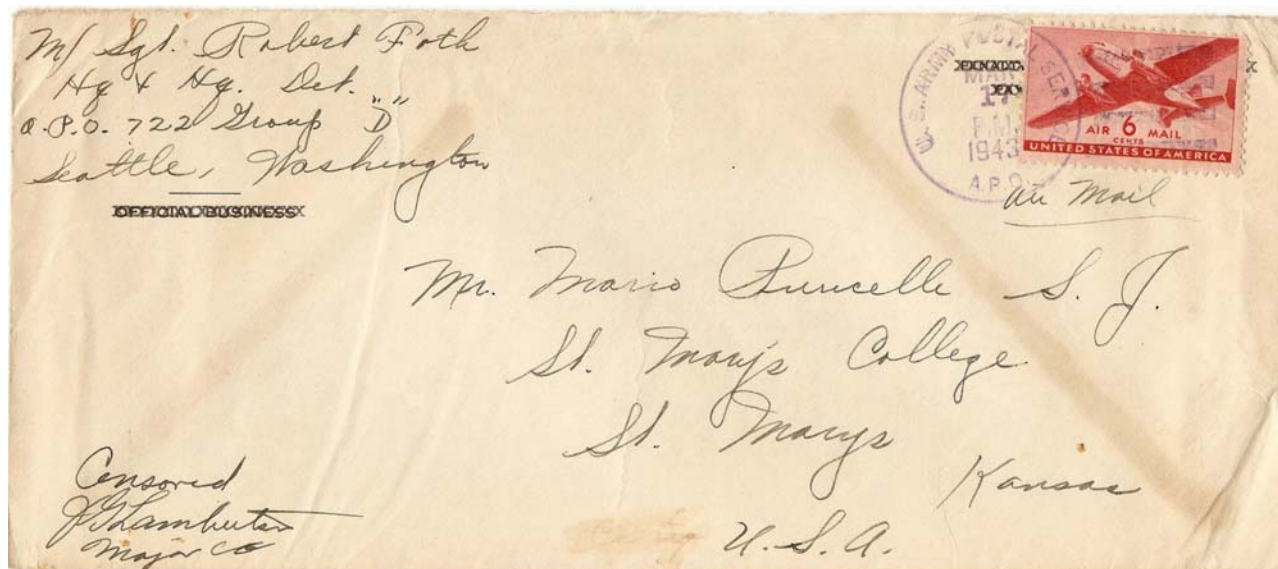 M/ Sgt. Robert Foth
Hq & Hq. Det.
A.P.O. 722 Group "D"
Seattle, Washington
OFFICIAL BUSINESS
U. S. ARMY POSTAL SERVICE
MAR
17
P.M.
1943
A.P.O.
AIR 6 MAIL
CENTS
UNITED STATES OF AMERICA
Air Mail
Mr. Mario Purcelle S. J.
St. Marys College
St. Marys
Kansas
U.S.A.
Censored
Major CE